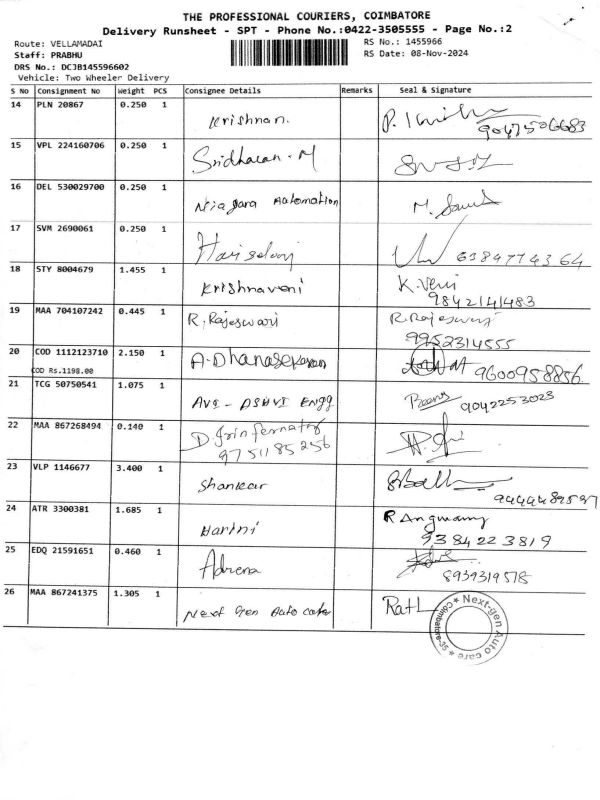 THE PROFESSIONAL COURIERS, COIMBATORE
Delivery Runsheet - SPT - Phone No.:0422-3505555 - Page No.:2
Route: VELLAMADAI RS No.: 1455966
Staff: PRABHU RS Date: 08-Nov-2024
DRS No.: DCJB145596602
Vehicle: Two Wheeler Delivery
S No Consignment No Weight PCS Consignee Details Remarks Seal & Signature
14 PLN 20867 0.250 1 Krishnan. 9047506683
15 VPL 224160706 0.250 1 Sridharan.M
16 DEL 530029700 0.250 1 Niagara Automation M.
17 SVM 2690061 0.250 1 6384774364
18 STY 8004679 1.455 1 Krishnaveni K.Veni
9842141483
19 MAA 704107242 0.445 1 R.Rajeswari R.Rajeswari
9952314555
20 COD 1112123710 2.150 1 A.Dhanasekaran 9600958856
COD Rs.1198.00
21 TCG 50750541 1.075 1 Engg 9042253023
22 MAA 867268494 0.140 1 D.
9751185256
23 VLP 1146677 3.400 1 Shankar
9444489597
24 ATR 3300381 1.685 1 Harini R
9384223819
25 EDQ 21591651 0.460 1 Adrena
8939319578
26 MAA 867241375 1.305 1 Next Gen Auto care
Next-gen Auto care
Coimbatore-35